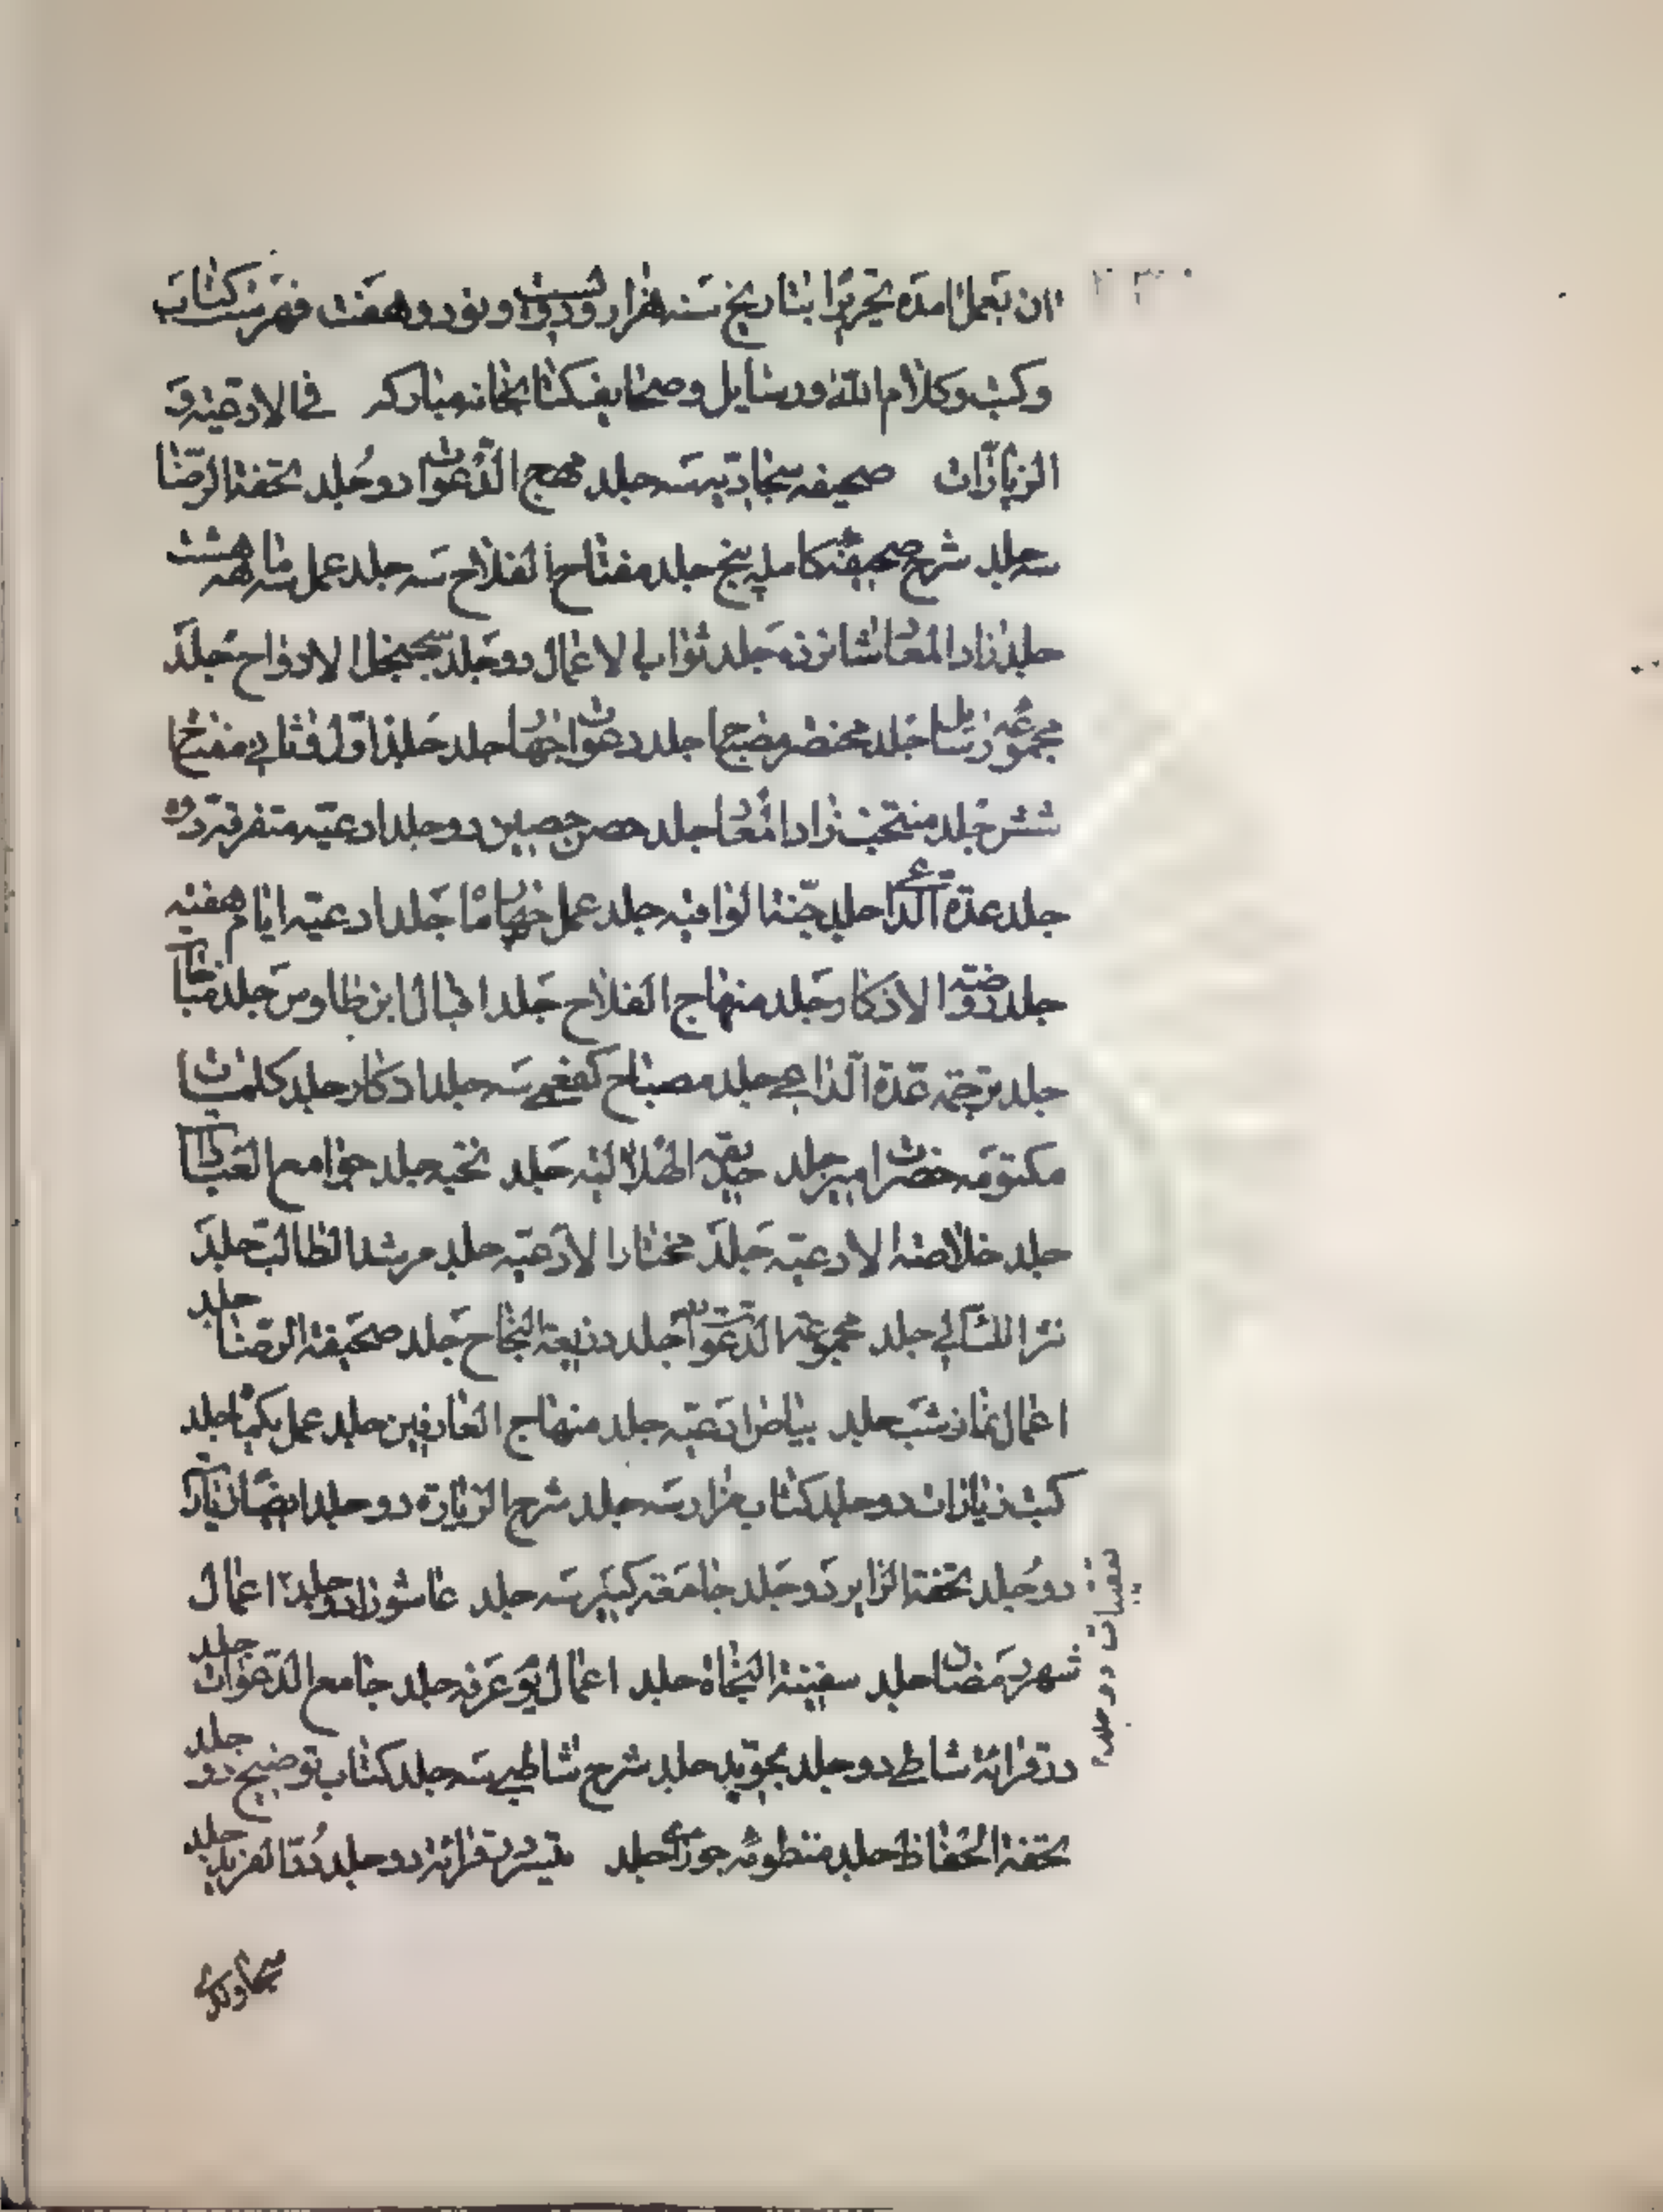 ان بعمل امده تحریرا بتاریخ سنه هزار و دویست و نود و هفت فهرست کتاب
و کتب و کلام الله و رسایل و صحایف کتابخانه مبارکه فی الادعیه و
الزیارات صحیفه سجادیه سه جلد مهج الدعوات دو جلد تحفة الرضا
سه جلد شرح صحیفه کامله پنج جلد مفتاح الفلاح سه جلد عمل سه ماهه هشت
جلد زاد المعاد شانزده جلد ثواب الاعمال دو جلد سجنجل الارواح جلد
مجموعه رسایل جلد مختصر مصباح جلد دعوات جلد جلد اول
شش جلد منتخب زاد المعاد جلد حصن حصین دو جلد ادعیه متفرقه ده
جلد عدة الداعی جلد جنة الواقیه جلد عمل جلد ادعیه ایام هفته
جلد روضة الاذکار جلد منهاج الفلاح جلد اقبال ابن طاوس جلد مناجات
جلد ترجمه عدة الداعی جلد مصباح کفعمی سه جلد اذکار جلد کلمات
مکتومه حضرت امیر جلد حدیقه الهلالیه جلد نخبه جلد جوامع
جلد خلاصة الادعیه جلد مختار الادعیه جلد مرشد الطالب جلد
نثر اللئالی جلد مجموعة الدعوات جلد ذریعة النجاح جلد صحیفة الرضا جلد
اعمال نماز شب جلد بیاض ادعیه جلد منهاج العارفین جلد عمل یکماه جلد
کتب زیارات دو جلد کتاب مزار سه جلد شرح الزیاره دو جلد ایضا زیارات
دو جلد تحفة الزایر دو جلد جامعه کبیر سه جلد عاشورا دو جلد اعمال
شهر رمضان جلد سفینة النجاة جلد اعمال یوم عرفه جلد جامع الدعوات جلد
در قرائة شاطبی دو جلد تجوید جلد شرح شاطبی سه جلد کتاب توضیح دو جلد
تحفة الحفاظ جلد منظومه جزری جلد تیسر در قرائة دو جلد جلد
تعقیبات دو جلد
سجاوندی